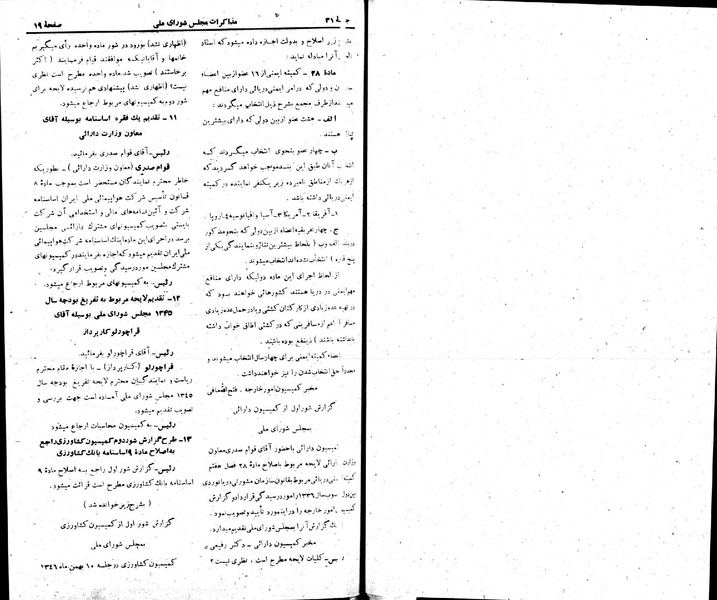 جلسه ۳۱
مذاکرات مجلس شورای ملی
صفحهٔ ۱۹
زیر اصلاح و بدولت اجازه داده میشود که اسناد
آنرا مبادله نماید :
مادهٔ ۲۸ – کمیته ایمنی از ۱۶ عضو از بین اعضاء
و دولی که در امر ایمنی دریائی دارای منافع مهم
از طرف مجمع بشرح ذیل انتخاب میگردند :
الف – هشت عضو از بین دولی که دارای بیشترین
هستند .
ب – چهار عضو بنحوی انتخاب میگردند که
انتخاب آنان طبق این بند موجب خواهد گردید که
از هر یک از مناطق نامبرده زیر یکنفر نماینده در کمیته
ایمنی دریائی داشته باشد .
۱ – آفریقا ۲ – آمریکا ۳ – آسیا و اقیانوسیه ۴ – اروپا .
ج – چهار بقیه اعضاء از بین دولی که بنحو مذکور
در بند الف و ب ( بلحاظ بیشترین تناژ و نمایندگی یکی از
پنج قاره ) انتخاب نشده اند انتخاب میشوند .
از لحاظ اجرای این ماده دولیکه دارای منافع
مهم ایمنی در دریا هستند کشورهائی خواهند بود که
در تهیه عده زیادی از کارکنان کشتی و یا در حمل عده زیادی
مسافر ( اعم از مسافرینی که در کشتی اطاق خواب داشته
یا نداشته باشند ) ذینفع بوده باشند .
اعضاء کمیته ایمنی برای چهار سال انتخاب میشوند و
مجدداً حق انتخاب شدن را نیز خواهند داشت .
مخبر کمیسیون امور خارجه . فتح الله مافی
گزارش شور اول از کمیسیون دارائی
بمجلس شورای ملی
کمیسیون دارائی با حضور آقای قوام صدری معاون
وزارت دارائی لایحه مربوط باصلاح مادهٔ ۲۸ فصل هفتم
دریائی مربوط بقانون سازمان مشورتی دریانوردی
بین دول مصوب سال ۱۳۳۶ را مورد رسیدگی قرار داد و گزارش
کمیسیون امور خارجه را در این مورد تأیید و تصویب نمود .
اینک گزارش آنرا بمجلس شورای ملی تقدیم میدارد .
مخبر کمیسیون دارائی – دکتر رفیعی
رئیس – کلیات لایحه مطرح است ، نظری نیست ؟
(اظهاری نشد) بورود در شور ماده واحده رأی میگیریم
خانمها و آقایانیکه موافقند قیام فرمایند ( اکثر
برخاستند ) تصویب شد . ماده واحده مطرح است نظری
نیست؟ (اظهاری نشد) پیشنهادی هم نرسیده لایحه برای
شور دوم به کمیسیونهای مربوط ارجاع میشود.
۱۱ – تقدیم یک فقره اساسنامه بوسیله آقای
معاون وزارت دارائی
رئیس – آقای قوام صدری بفرمائید.
قوام صدری (معاون وزارت دارائی) – بطوریکه
خاطر محترم نمایندگان مستحضر است بموجب مادهٔ ۸
قانون تأسیس شرکت هواپیمائی ملی ایران اساسنامه
شرکت و آئین نامه های مالی و استخدامی آن شرکت
بایستی بتصویب کمیسیونهای مشترک دارائی مجلسین
برسد در اجرای این ماده اینک اساسنامه شرکت هواپیمائی
ملی ایران تقدیم میشود که اجازه بفرمایند در کمیسیونهای
مشترک مجلسین مورد رسیدگی و تصویب قرار گیرد.
رئیس – به کمیسیونهای مربوط ارجاع میشود.
۱۲ – تقدیم لایحه مربوط به تفریغ بودجه سال
۱۳۴۵ مجلس شورای ملی بوسیله آقای
قراچورلو کارپرداز
رئیس – آقای قراچورلو بفرمائید.
قراچورلو (کارپرداز) – با اجازهٔ مقام محترم
ریاست و نمایندگان محترم لایحه تفریغ بودجه سال
۱۳۴۵ مجلس شورای ملی آماده است جهت بررسی و
تصویب تقدیم میشود.
رئیس – به کمیسیون محاسبات ارجاع میشود
۱۳ – طرح گزارش شور دوم کمیسیون کشاورزی راجع
به اصلاح مادهٔ ۹ اساسنامه بانک کشاورزی
رئیس – گزارش شور اول راجع به اصلاح مادهٔ ۹
اساسنامه بانک کشاورزی مطرح است قرائت میشود.
( بشرح زیر خوانده شد )
گزارش شور اول از کمیسیون کشاورزی
بمجلس شورای ملی
کمیسیون کشاورزی در جلسه ۱۰ بهمن ماه ۱۳۴۶